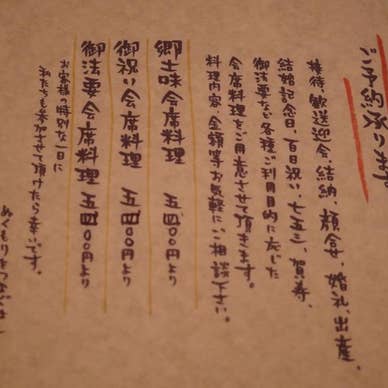 ご予約承ります
接待、歓送迎会、結納、顔合せ、婚礼、出産、
結婚記念日、百日祝い、七五三、賀寿、
御法要など各種ご利用目的に応じた
会席料理をご用意させて頂きます。
料理内容、金額等お気軽にご相談下さい。
郷土味会席料理 五四〇〇円より
御祝い会席料理 五四〇〇円より
御法要会席料理 五四〇〇円より
お客様の特別な一日に
私たちも参加させて頂けたら幸いです。